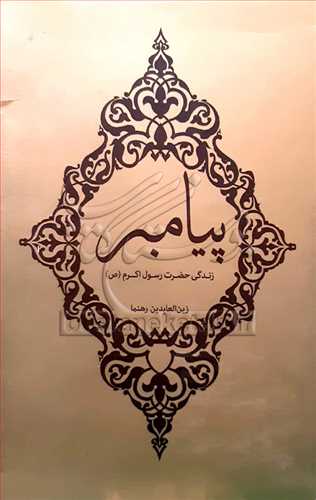 پیامبر
زندگی حضرت رسول اکرم (ص)
زین‌العابدین رهنما